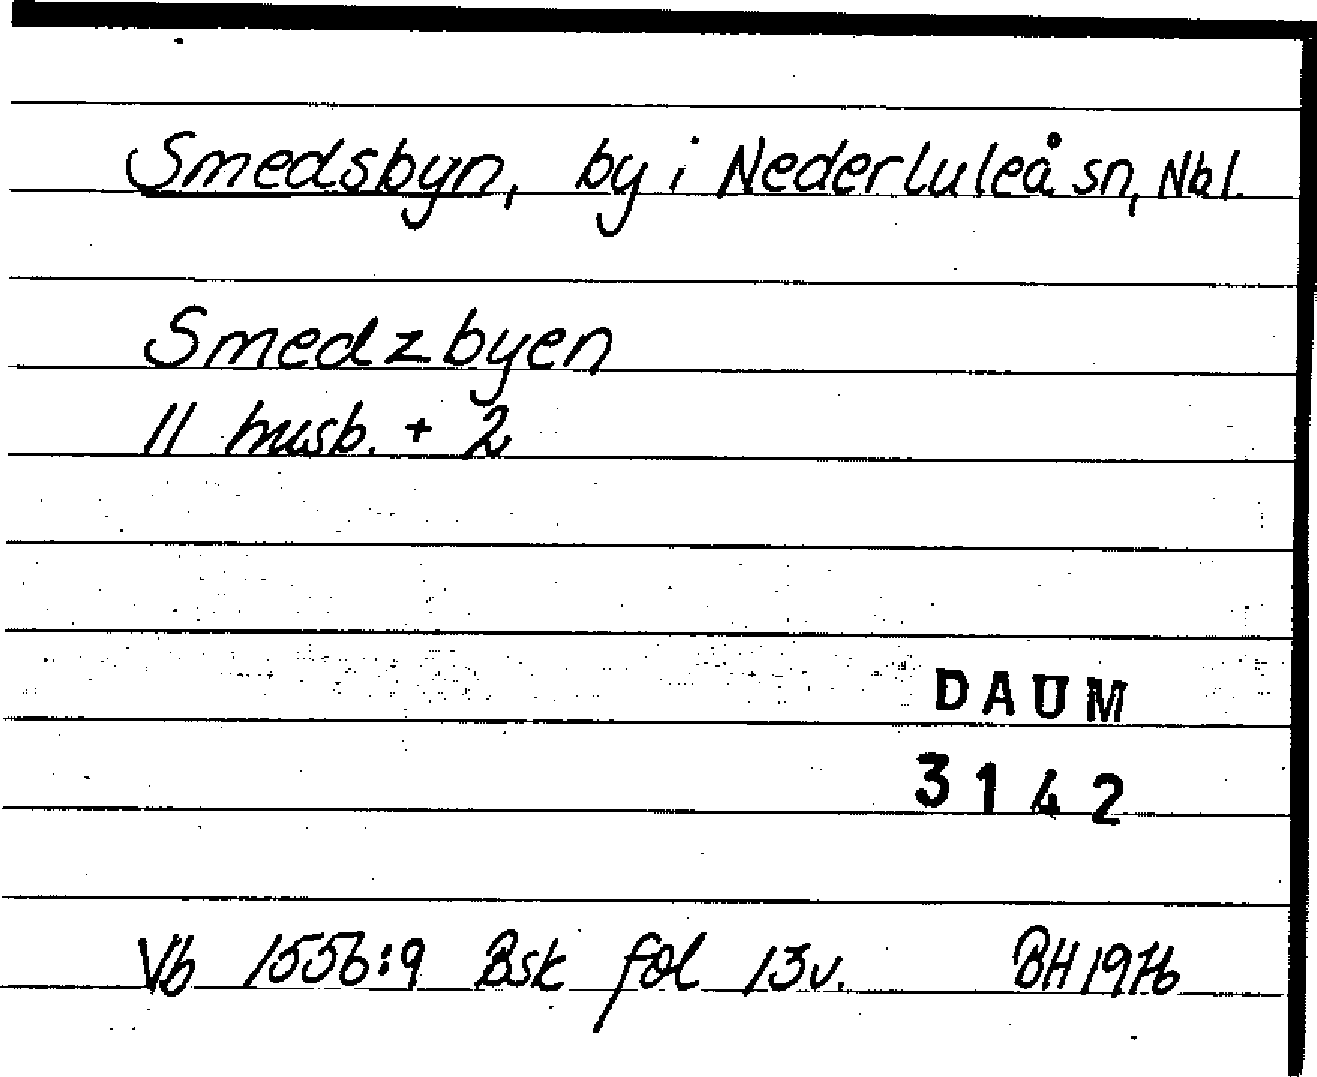 Smedsbyn, by i Nederluleå sn, Nbl.
Smedzbyen
11 husb. + 2
DAUM
3142
Vb 1556:9 Bsk fol 13v. BH 1976